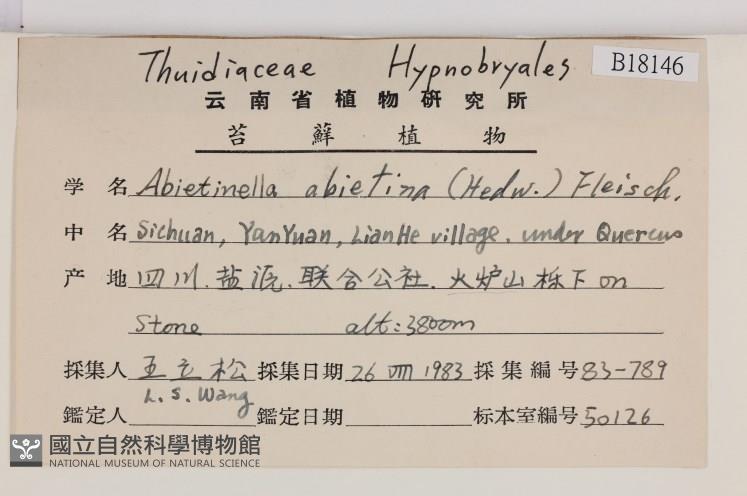 Thuidiaceae Hypnobryales
B18146
云南省植物研究所
苔蘚植物
学名 Abietinella abietina (Hedw.) Fleisch.
中名 Sichuan, YanYuan, LianHe village. under Quercus
产地 四川. 盐源. 联合公社. 火炉山栎下 on
Stone alt: 3800m
採集人 王立松 採集日期 26 1983 採集編号 83-789
L. S. Wang
鑑定人 鑑定日期 标本室編号 50126
國立自然科學博物館
NATIONAL MUSEUM OF NATURAL SCIENCE